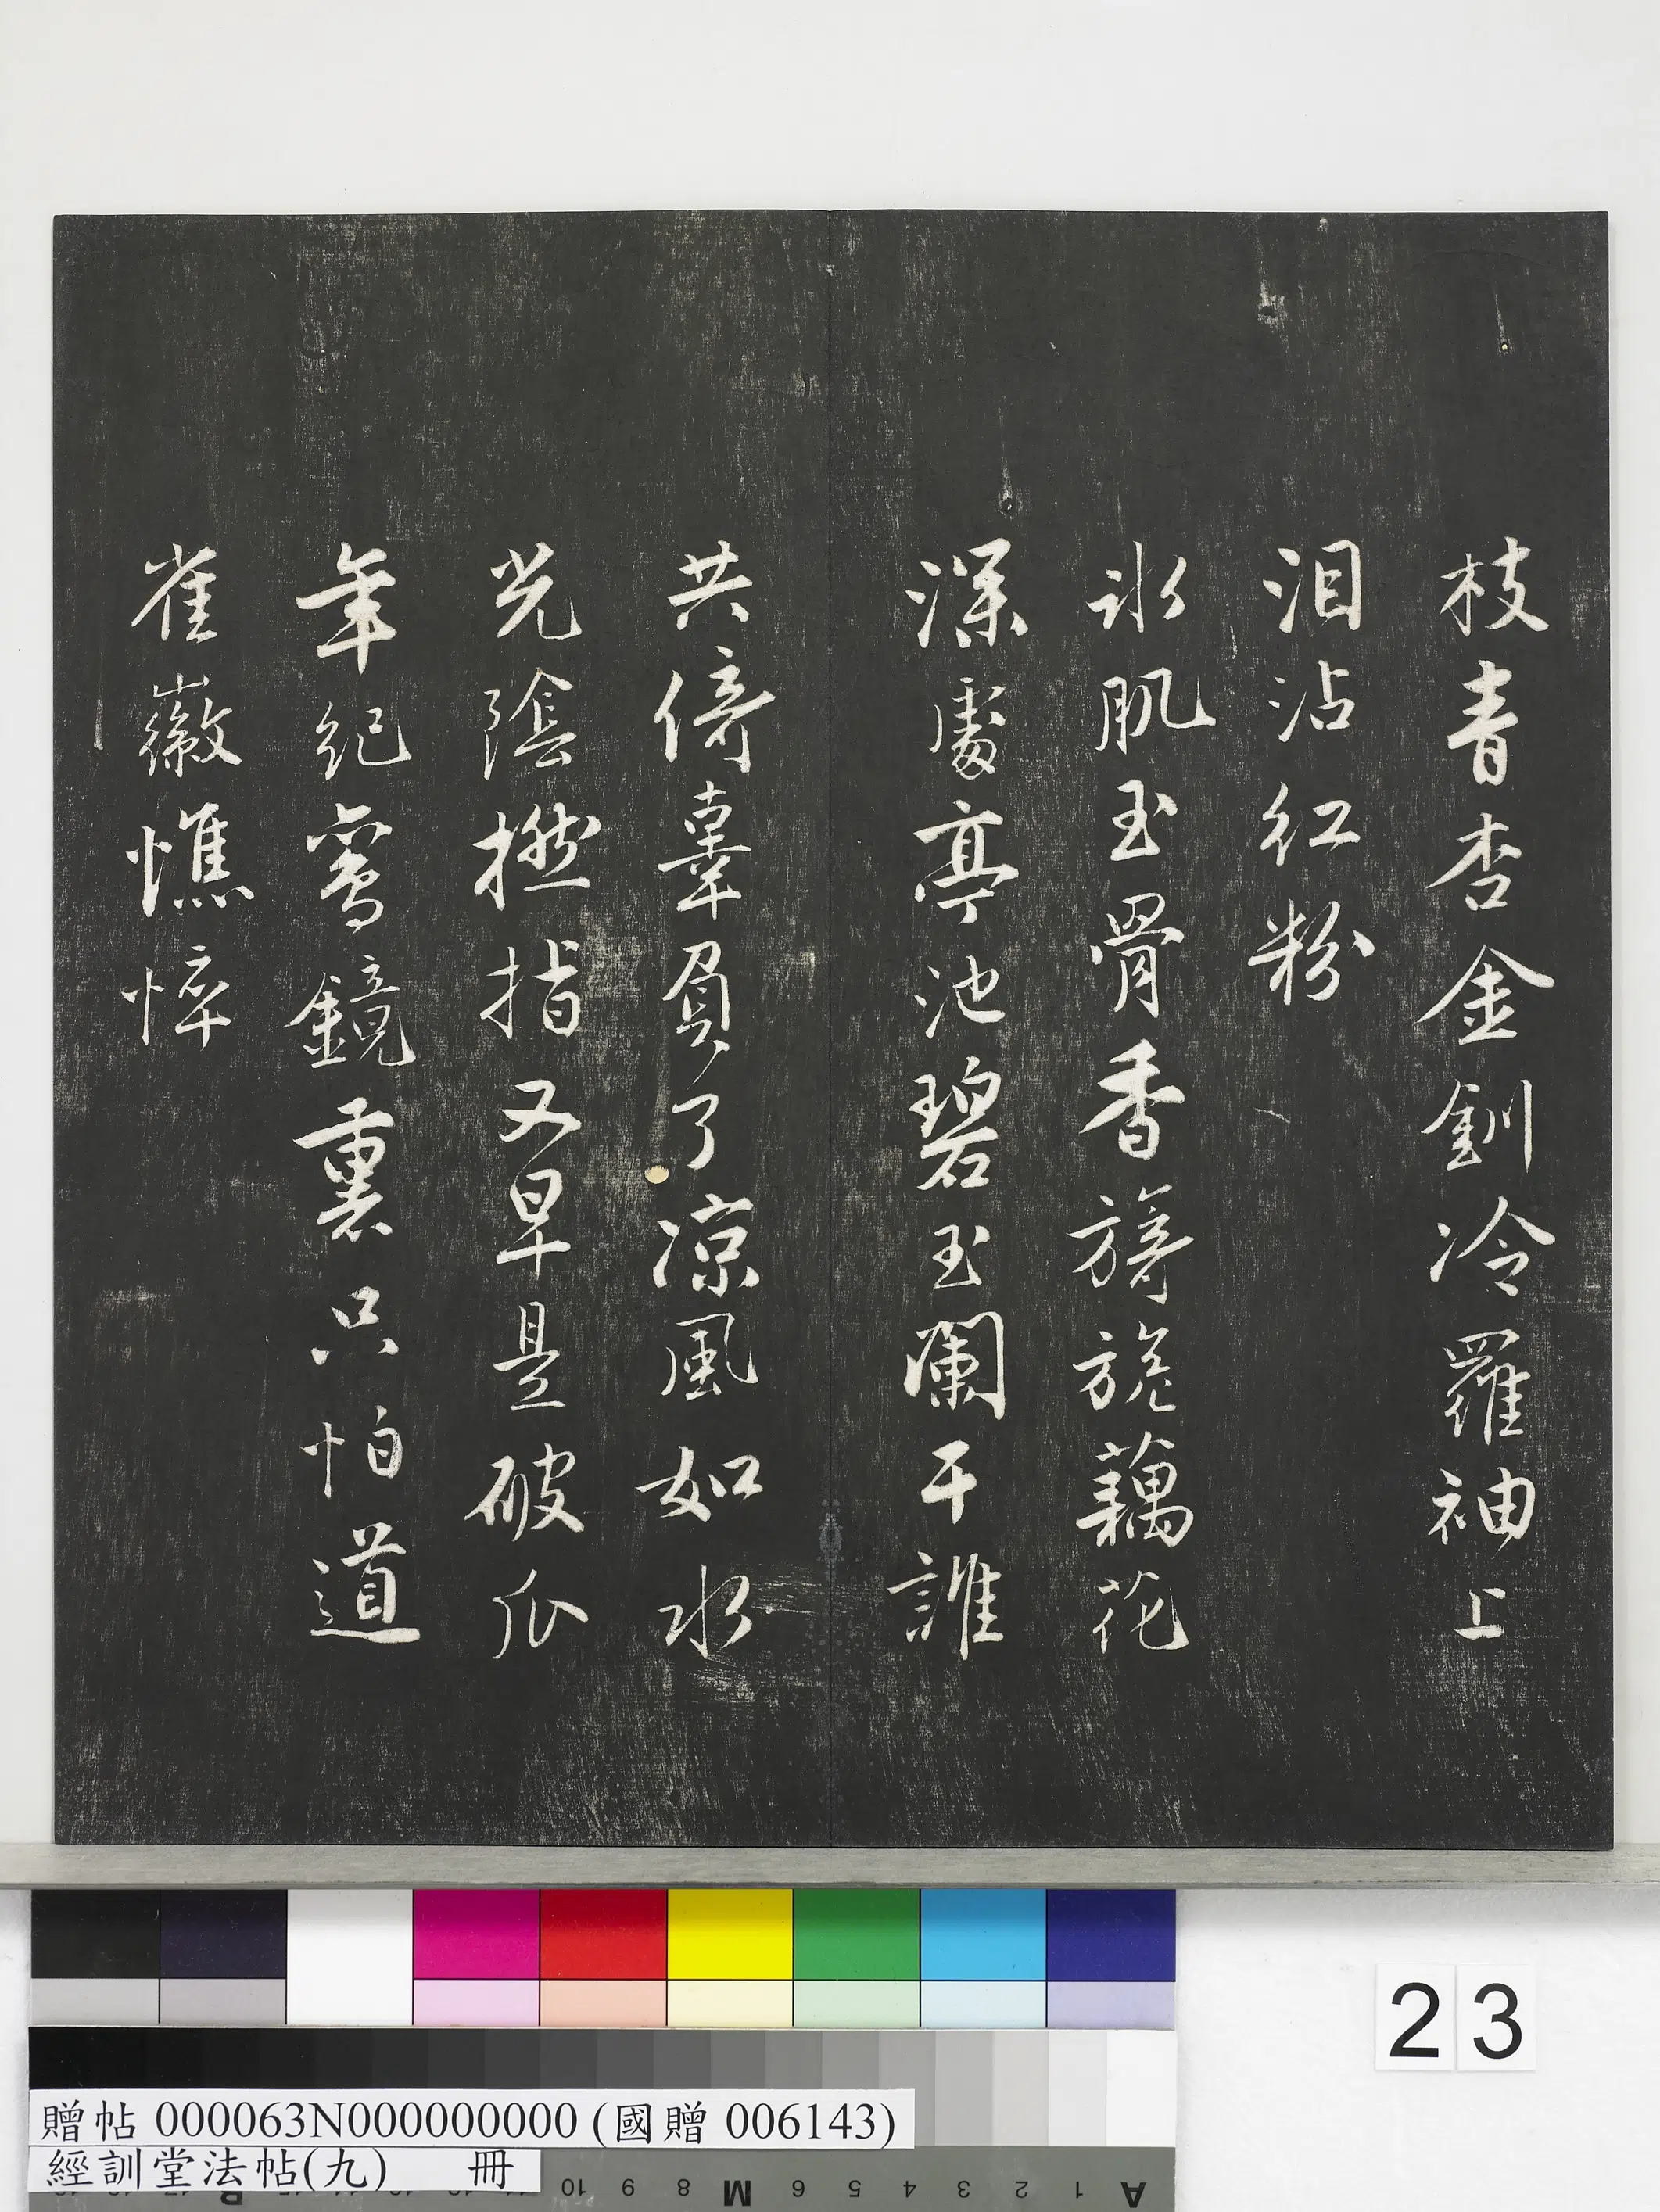 枝青杏金釧冷羅袖上
泪沾紅粉
氷肌玉骨香旖旎藕花
深處亭池碧玉闌干誰
共倚辜負了凉風如水
光陰撚指又早是破瓜
年紀鸞鏡裏只怕道
崔徽憔悴
23
贈帖 000063N000000000 (國贈 006143)
經訓堂法帖(九) 冊
10 9 8 M 6 5 4 3 2 1 A